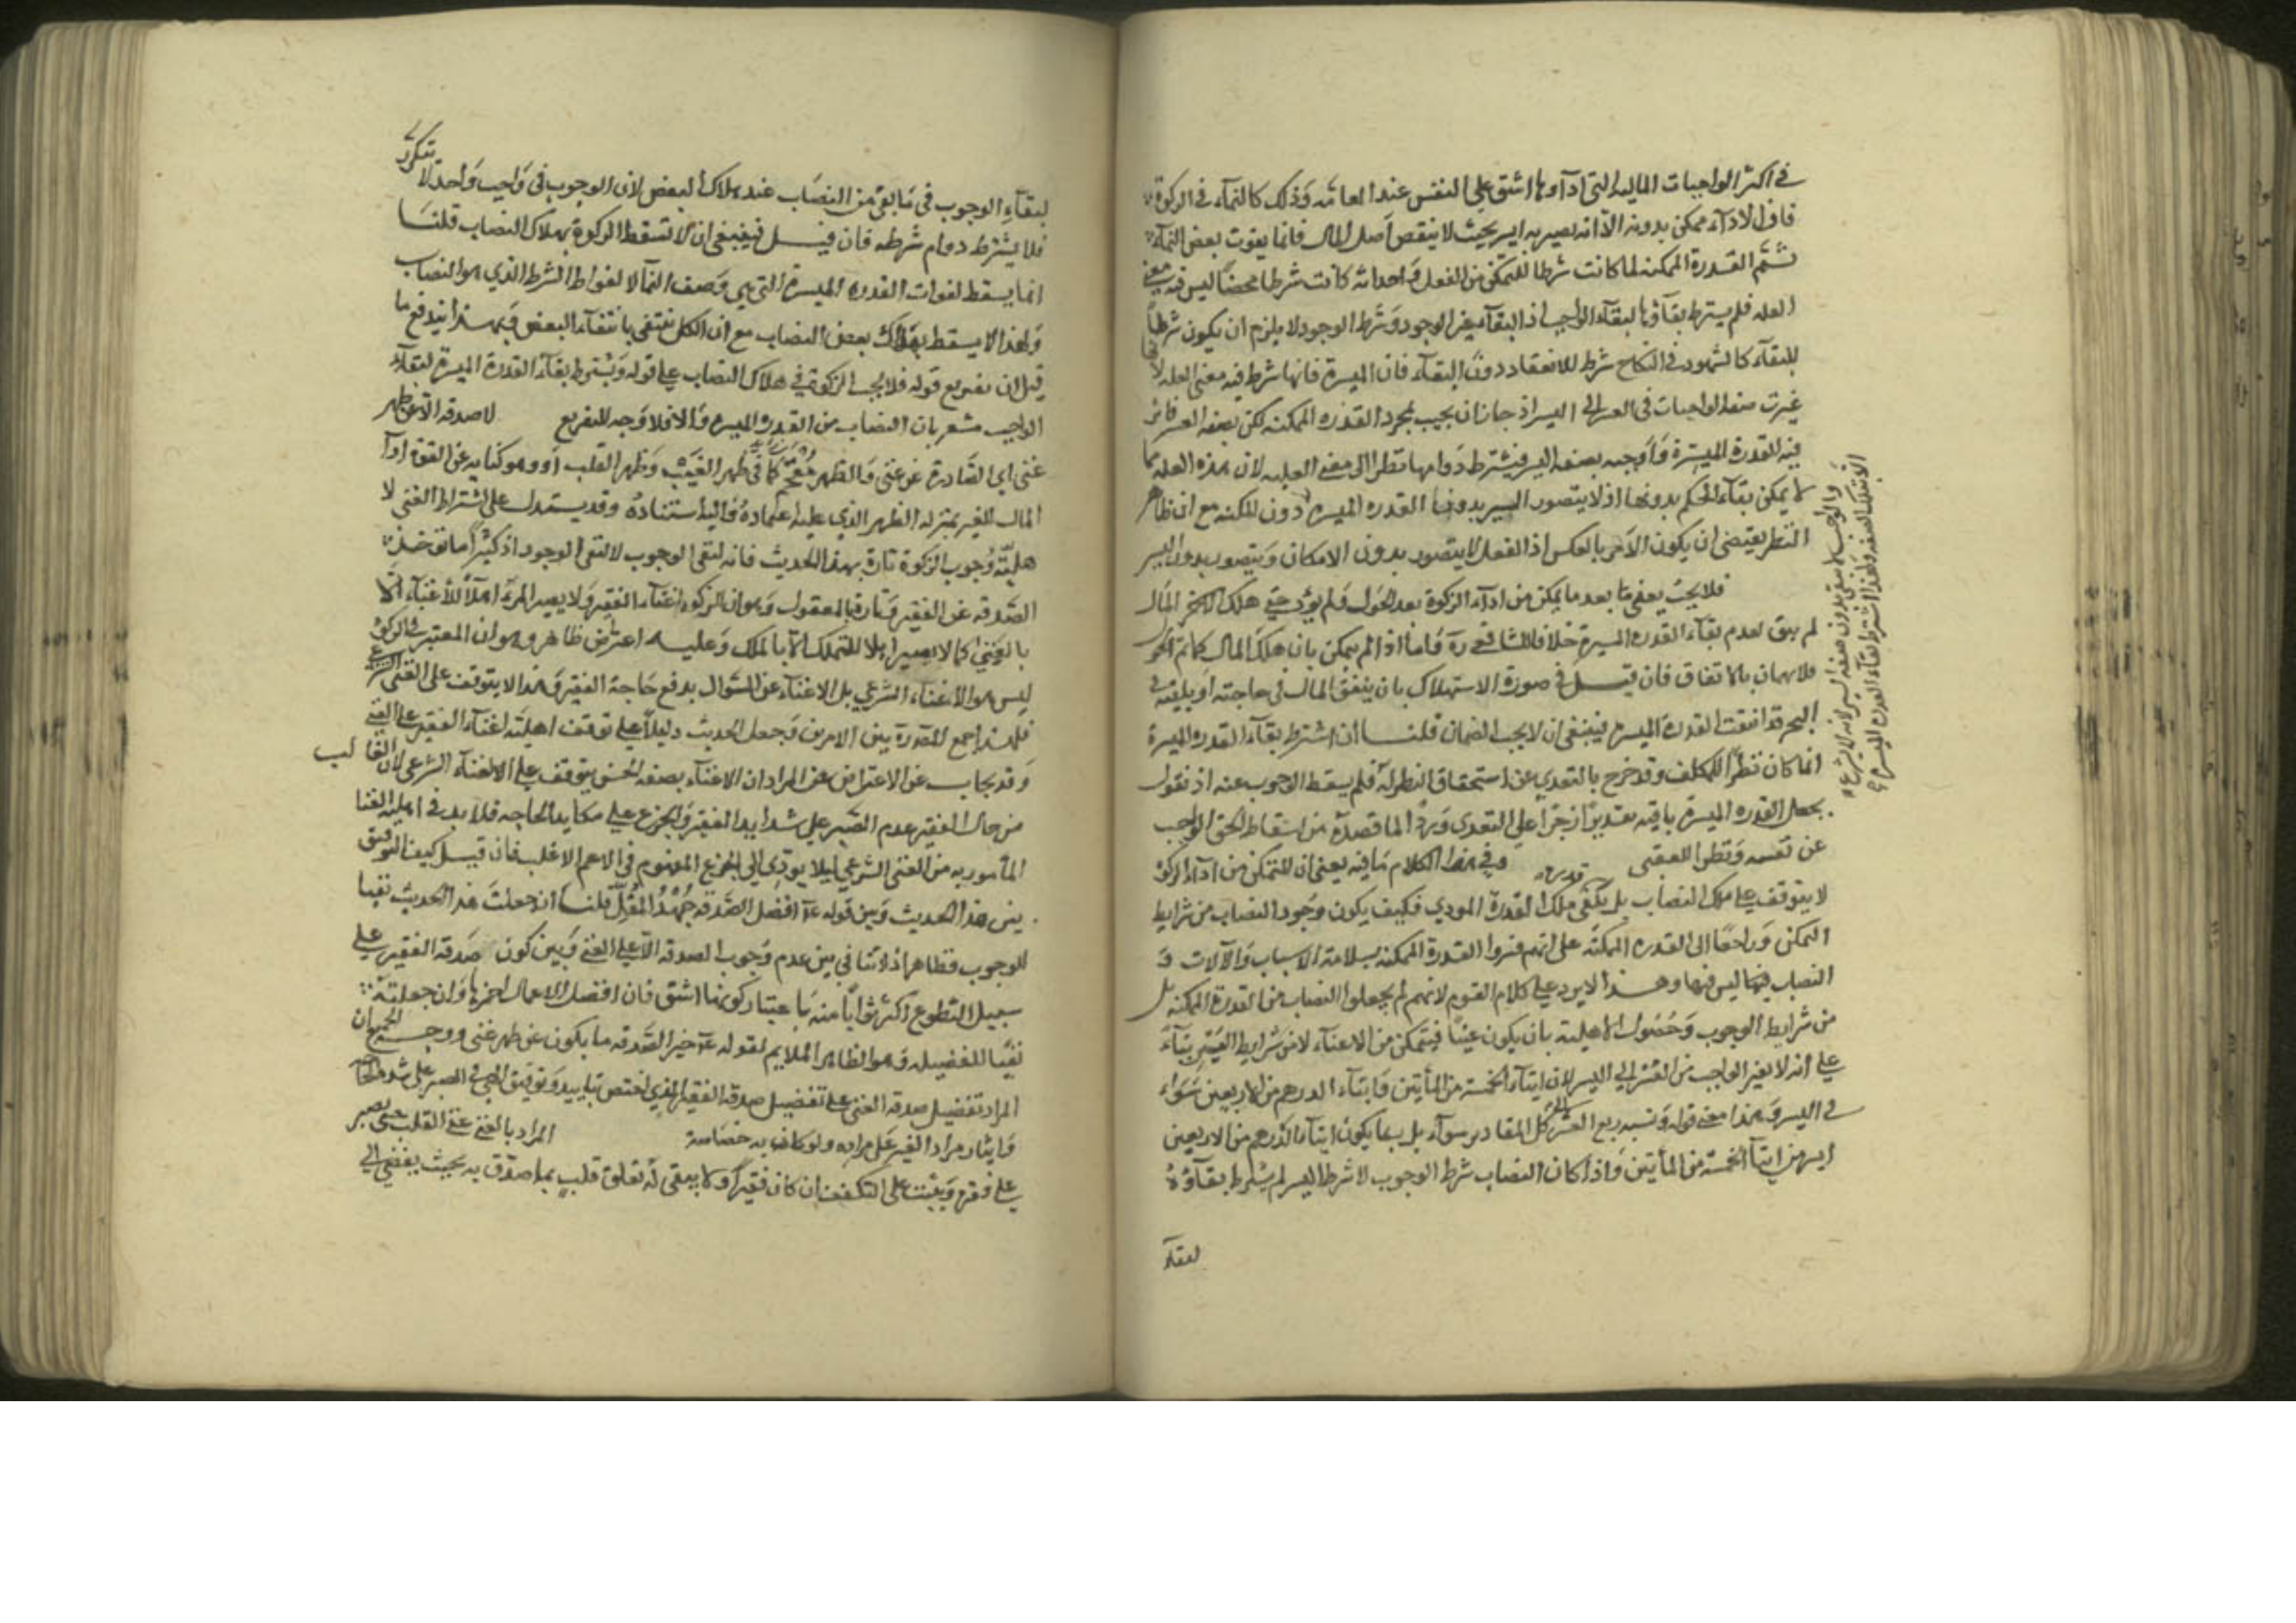 في اكثر الواجبات المالية التي اداؤها اشق على النفس عند العامة وذلك كالنماء في الزكوة
فان الاداء ممكن بدونه الا انه يصير به ايسر بحيث لا ينقص اصل المال فانما يفوت بعض النماء
ثم القدرة الممكنة لما كانت شرطا للتمكن من الفعل واحداثه كانت شرطا محضا ليس فيه معنى
العلة فلم يشترط بقاؤها لبقاء الواجب اذ البقاء غير الوجود وشرط الوجود لا يلزم ان يكون شرطا
للبقاء كالشهود في النكاح شرط للانعقاد دون البقاء فان الميسرة فانها شرط فيه معنى العلة لانها
غيرت صفة الواجبات من العسر الى اليسر اذ جاز ان يجب بمجرد القدرة الممكنة لكن بصفة العسر فاثر
فيه القدرة الميسرة واوجبه بصفة اليسر فيشترط دوامها نظرا الى معنى العلية لان هذه العلة مما
لا يمكن بقاء الحكم بدونها اذ لا يتصور اليسر بدون القدرة الميسرة دون الممكنة مع ان ظاهر
النظر يقتضى ان يكون الامر بالعكس اذ الفعل لا يتصور بدون الامكان ويتصور بدون اليسر
فلا يجب يعنى ما بعد ما يمكن من اداء الزكوة بعد الحول ولم يؤد حتى هلك المال
لم يبق لعدم بقاء القدرة الميسرة خلافا للشافعي ره فاما اذا لم يمكن بان هلك المال كما تم الحول
فلا ضمان بالاتفاق فان قيل في صورة الاستهلاك بان ينفق المال في حاجته او يلقيه في
البحر قد انتفت القدرة الميسرة فينبغى ان لا يجب الضمان قلنا ان اشتراط بقاء القدرة الميسرة
انما كان نظرا للمكلف وقد خرج بالتعدي عن استحقاق النظر له فلم يسقط الوجوب عنه او نقول
بجعل القدرة الميسرة باقية تقديرا زجرا على التعدي وردا لما قصده من اسقاط الحق الواجب
عن نفسه ونظرا للفقير وفي هذا الكلام ما فيه يعنى ان التمكن من اداء الزكوة
لا يتوقف على ملك النصاب بل يكفي ملك القدرة المودي فكيف يكون وجود النصاب من شرايط
التمكن وراجعا الى القدرة الممكنة على انهم فسروا القدرة الممكنة بسلامة الاسباب والآلات و
النصاب ليس فيها وهذا لا يرد على كلام القوم لانهم لم يجعلوا النصاب من القدرة الممكنة بل
من شرايط الوجوب وحصول الاهلية بان يكون غنيا فيتمكن من الاغناء لا من شرايط اليسر بناء
على انه لا يغير الواجب من العسر الى اليسر لان ايتاء الخمسة من المأيتين وايتاء الدرهم من الاربعين سواء
في اليسر وهذا معنى قوله ونسبة ربع العشر الى كل المقادير سواء بل ربما يكون ايتاء الدرهم من الاربعين
ايسر من ايتاء الخمسة من المأيتين واذا كان النصاب شرط الوجوب لا شرط اليسر لم يشترط بقاؤه
لبقاء
والواجب لا يبقى بدون صفة اليسر لانه لم يشرع
الا بتلك الصفة ولهذا اشترط بقاء القدرة الميسرة
لبقاء الوجوب في ما بقي من النصاب عند هلاك البعض لان الوجوب في واجب واحد لا يتكرر
فلا يشترط دوام شرطه فان قيل فينبغى ان لا تسقط الزكوة بهلاك النصاب قلنا
انما يسقط لفوات القدرة الميسرة التي هي وصف النماء لا لفوات الشرط الذي هو النصاب
ولهذا لا يسقط بهلاك بعض النصاب مع ان الكل ينتفي بانتفاء البعض وبهذا يندفع ما
قيل ان تفريع قوله فلا يجب الزكوة في هلاك النصاب على قوله ويشترط بقاء القدرة الميسرة لبقاء
الواجب مشعر بان النصاب من القدرة الميسرة والا فلا وجه للتفريع لا صدقة الا عن ظهر
غنى اي الصادرة عن غنى والظهر مقحم كما في ظهر الغيب وظهر القلب او هو كناية عن القوة اذ
المال للغير بمنزلة الظهر الذي عليه اعتماده واليه استناده وقد يستدل على اشتراط الغنى لا
هلية وجوب الزكوة تارة بهذا الحديث فانه لنفي الوجوب لا لنفي الوجود اذ كثيرا ما توجد
الصدقة عن الفقير وتارة بالمعقول وهو ان الزكوة اغناء الفقير ولا يصير المرء اهلا للاغناء الا
بالغنى كما لا يصير اهلا للتمليك الا بالملك وعليه اعتراض ظاهر وهو ان المعتبر في الزكوة
ليس هو الاغناء الشرعي بل الاغناء عن السؤال بدفع حاجة الفقير وهذا لا يتوقف على الغنى الشرعي
فلهذا جمع المص ره بين الامرين وجعل الحديث دليلا على توقف اهلية اغناء الفقير على الغنى
وقد يجاب عن الاعتراض عن المراد ان الاغناء بصفة الحسن يتوقف على الاغناء الشرعي لان الغالب
من حال الفقير عدم الصبر على شدايد الفقر والجزع على مكايد الحاجة فلا بد في اهلية الغنا
المأمور به من الغنى الشرعي ليلا يودي الى الجزع المذموم في الاعم الاغلب فان قيل كيف التوفيق
بين هذا الحديث وبين قوله ع م افضل الصدقة جهد المقل قلنا ان جعلت هذا الحديث نفيا
للوجوب فظاهر اذ لا تنافي بين عدم وجوب الصدقة الا على الغني وبين كون صدقة الفقير على
سبيل التطوع اكثر ثوابا منه باعتبار كونها اشق فان افضل الاعمال احمزها وان جعلته
نفيا للفضيلة وهو الظاهر الملايم لقوله ع م خير الصدقة ما يكون عن ظهر غنى ووجه الجمع ان
المراد تفضيل صدقة الغنى على تفضيل صدقة الفقير الذي اختص بتاييد وتوفيق الهي في الصبر على شدة الحاجة
وايثار مراد الغير على مراده ولو كان به خصاصة المراد بالغنى غنى القلب حتى يصبر
على فقره ويثبت على التكفف ان كان فقيرا ولا يبقى له تعلق قلب بما صدق به بحيث يفضي الى